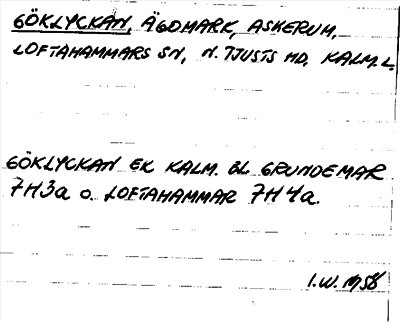 GÖKLYCKAN, ÄGOMARK, ASKERUM,
LOFTAHAMMARS SN, N. TJUSTS HD, KALM. L.
GÖKLYCKAN EK KALM. BL GRUNDEMAR
7H3a O. LOFTAHAMMAR 7H4a.
I.W. 1958